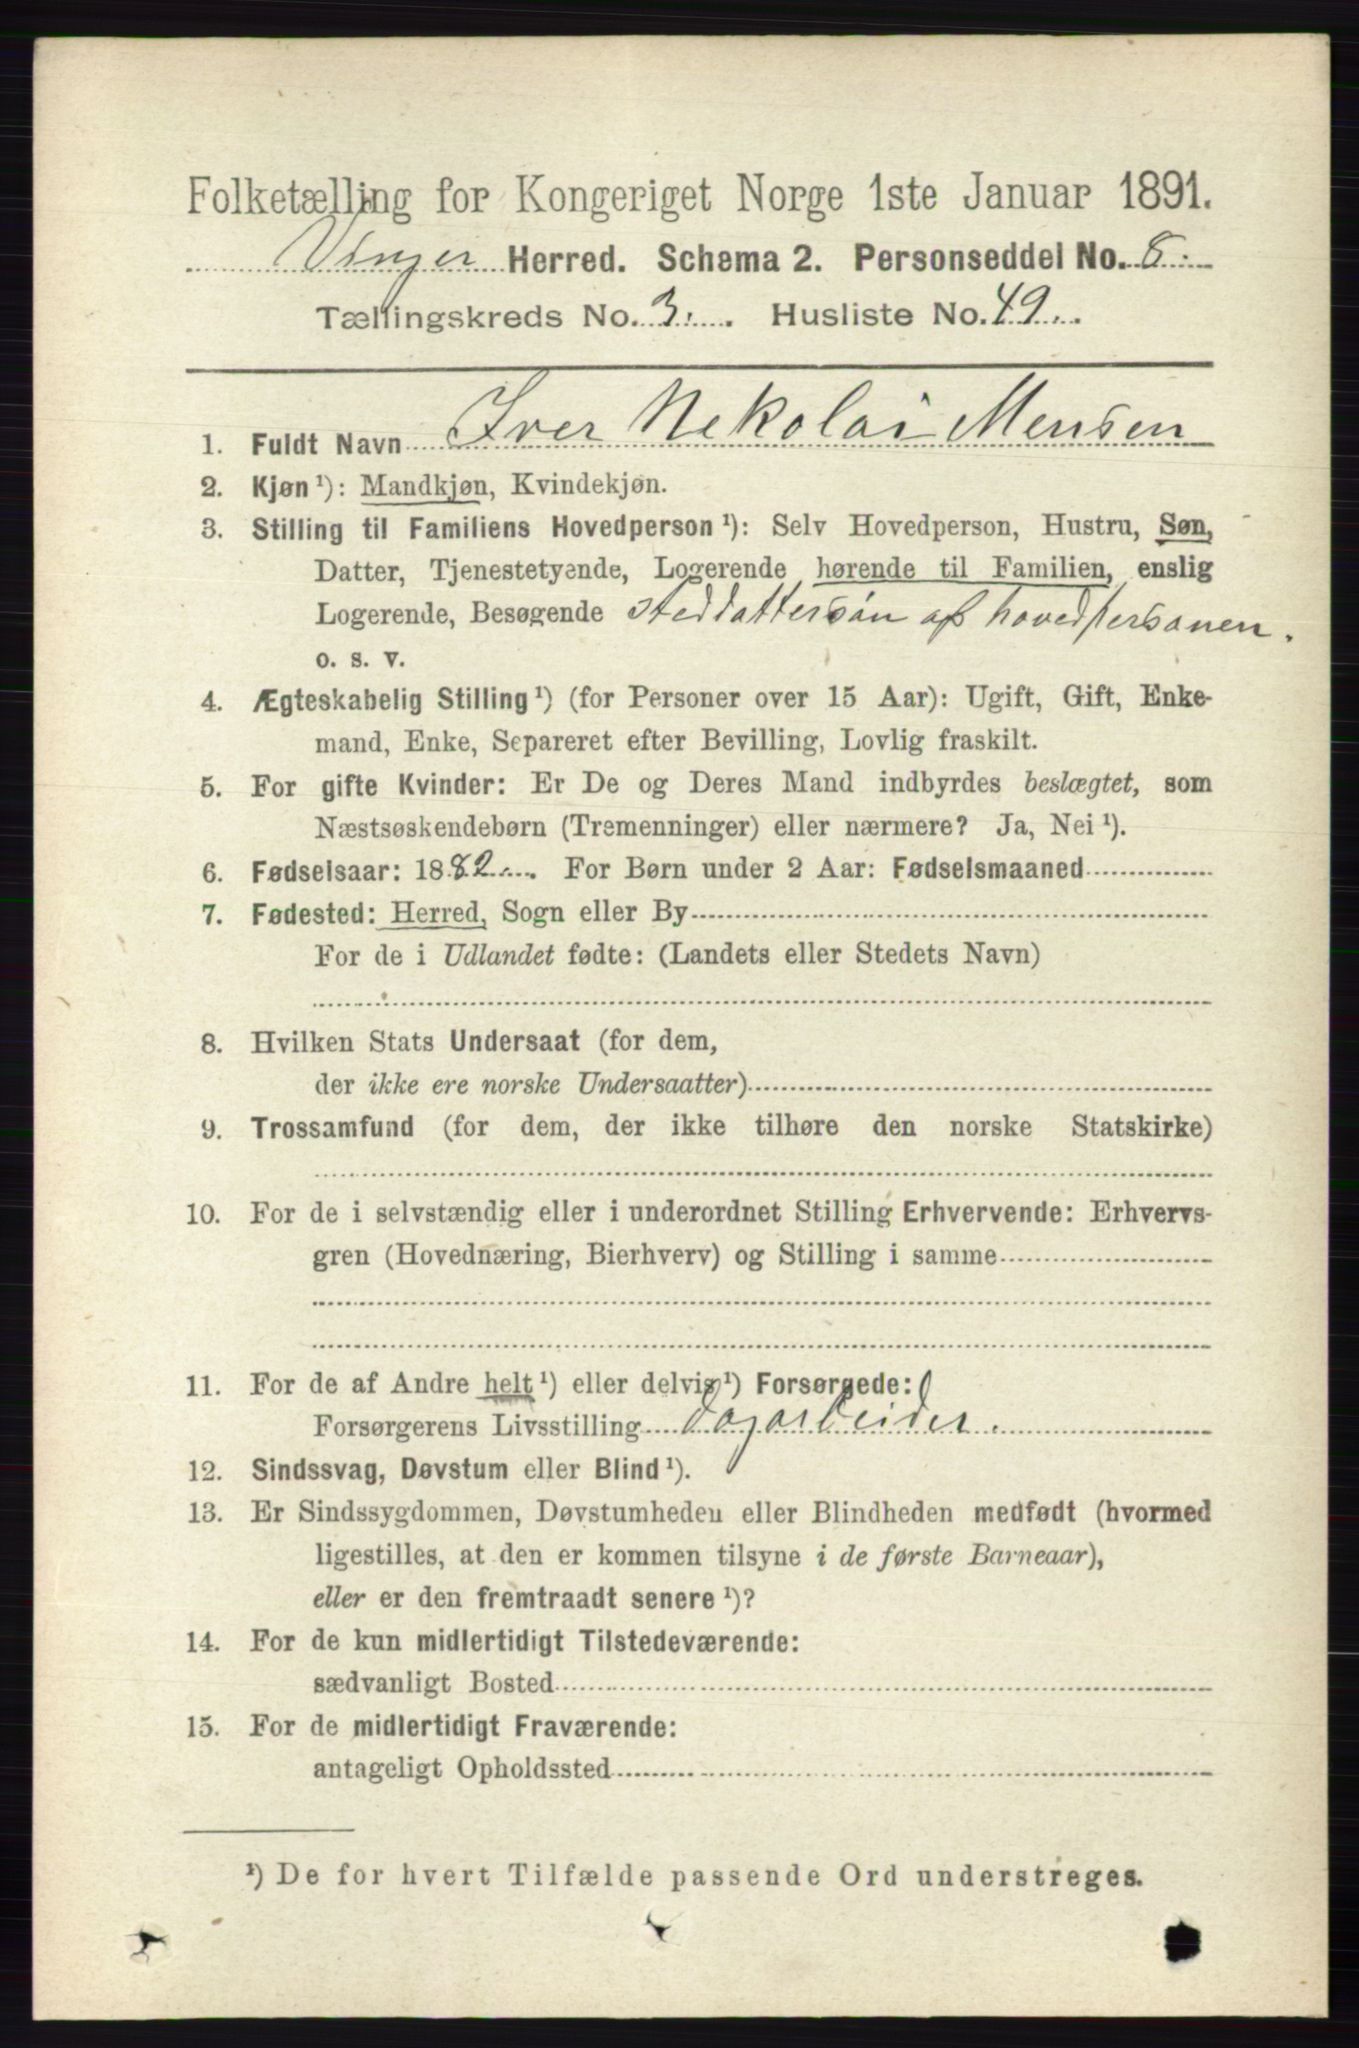 Folketælling for Kongeriget Norge 1ste Januar 1891.
Vinger Herred. Schema 2. Personseddel No. 8.
Tællingskreds No. 3. Husliste No. 49.
1. Fuldt Navn Iver Nekolai Mensen
2. Kjøn ¹): Mandkjøn, Kvindekjøn.
3. Stilling til Familiens Hovedperson ¹): Selv Hovedperson, Hustru, Søn,
Datter, Tjenestetyende, Logerende hørende til Familien, enslig
Logerende, Besøgende steddattersøn af hovedpersonen.
o. s. v.
4. Ægteskabelig Stilling ¹) (for Personer over 15 Aar): Ugift, Gift, Enke-
mand, Enke, Separeret efter Bevilling, Lovlig fraskilt.
5. For gifte Kvinder: Er De og Deres Mand indbyrdes beslægtet, som
Næstsøskendebørn (Tremenninger) eller nærmere? Ja, Nei ¹).
6. Fødselsaar: 1882. For Børn under 2 Aar: Fødselsmaaned
7. Fødested: Herred, Sogn eller By
For de i Udlandet fødte: (Landets eller Stedets Navn)
8. Hvilken Stats Undersaat (for dem,
der ikke ere norske Undersaatter)
9. Trossamfund (for dem, der ikke tilhøre den norske Statskirke)
10. For de i selvstændig eller i underordnet Stilling Erhvervende: Erhvervs-
gren (Hovednæring, Bierhverv) og Stilling i samme
11. For de af Andre helt ¹) eller delvis ¹) Forsørgede:
Forsørgerens Livsstilling dagarbeider.
12. Sindssvag, Døvstum eller Blind ¹).
13. Er Sindssygdommen, Døvstumheden eller Blindheden medfødt (hvormed
ligestilles, at den er kommen tilsyne i de første Barneaar),
eller er den fremtraadt senere ¹)?
14. For de kun midlertidigt Tilstedeværende:
sædvanligt Bosted
15. For de midlertidigt Fraværende:
antageligt Opholdssted
¹) De for hvert Tilfælde passende Ord understreges.